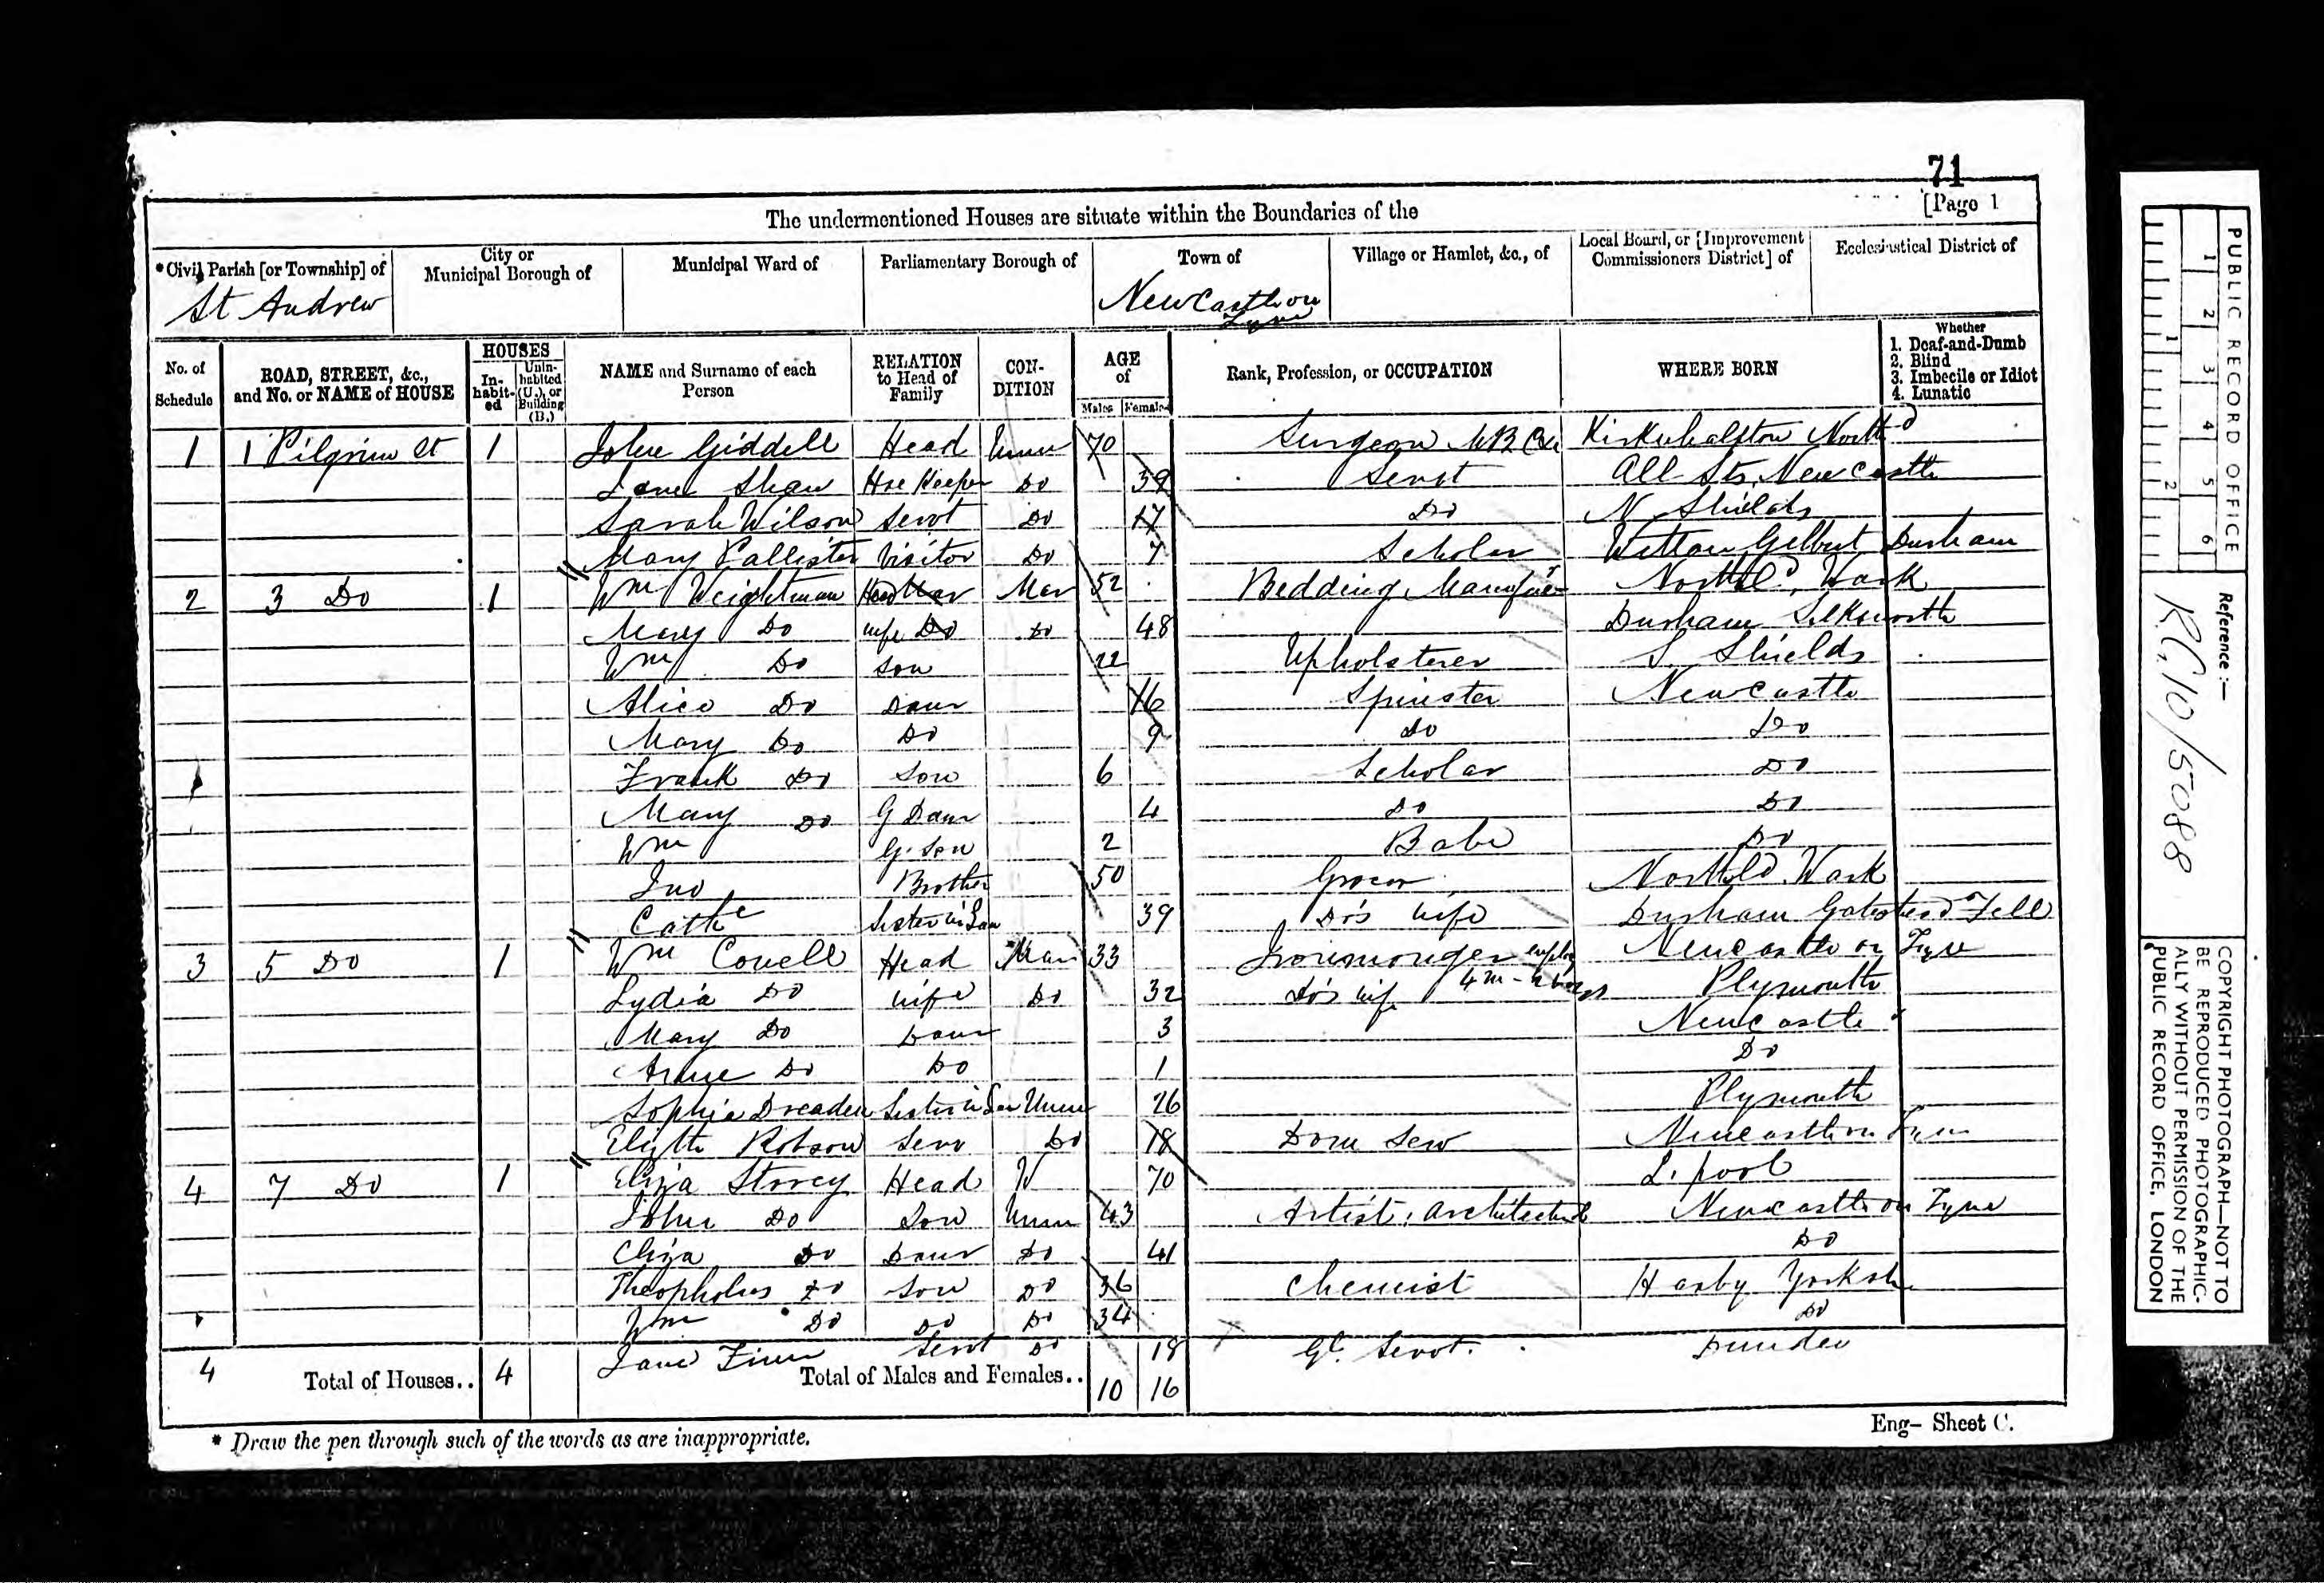 71
[Page 1
The undermentioned Houses are situate within the Boundaries of the
*Civil Parish [or Township] of
St Andrew
City or Municipal Borough of
Municipal Ward of
Parliamentary Borough of
Town of
Newcastle on Tyne
Village or Hamlet, &c., of
Local Board, or [Improvement Commissioners District] of
Ecclesiastical District of
No. of Schedule
ROAD, STREET, &c., and No. or NAME of HOUSE
HOUSES
In-habit-ed
Unin-habited (U.), or Building (B.)
NAME and Surname of each Person
RELATION to Head of Family
CON-DITION
AGE of
Males Females
Rank, Profession, or OCCUPATION
WHERE BORN
Whether
1. Deaf-and-Dumb
2. Blind
3. Imbecile or Idiot
4. Lunatic
1 1 Pilgrim St 1 John Giddell Head Unm 70 Surgeon North^d
Jane Shaw Hse Keeper Do 39 Servt All Sts, Newcastle
Sarah Wilson Servt Do 17 Do N Shields
Mary Pallister Visitor Do 7 Scholar Witton Gilbert Durham
2 3 Do 1 Wm Weightman Head Mar 52 Bedding Northd, Wark
Mary Do wife Do Do 48 Durham Silksworth
Wm Do Son 22 Upholsterer S. Shields
Alice Do Daur 16 Spinster Newcastle
Mary Do Do 9 Do Do
Frank Do Son 6 Scholar Do
Mary Do G Daur 4 Do Do
Wm G. Son 2 Babe Do
Jno Brother 50 Grocer Northld. Wark
Cathe Sister in Law 39 Do's wife Durham Gateshead Fell
3 5 Do 1 Wm Covell Head Mar 33 Ironmonger employ Newcastle on Tyne
Lydia Do wife Do 32 Do's wife 4 m - Plymouth
Mary Do Daur 3 Newcastle
Annie Do Do 1 Do
Sophia Dreaden Sister in Law Unm 26 Plymouth
Elizth Robson Serv Do 18 Dom Serv Newcastle on Tyne
4 7 Do 1 Eliza Storey Head W 70 L.pool
John Do Son Unm 43 Artist, Architectural Newcastle on Tyne
Eliza Do Daur Do 41 Do
Theopholus Do Son Do 36 Chemist Yorksh
Wm Do Do Do 34 Do
Jane Servt Do 18 Gl. Servt. Dundee
4 Total of Houses.. 4 Total of Males and Females.. 10 16
* Draw the pen through such of the words as are inappropriate.
Eng- Sheet C.
PUBLIC RECORD OFFICE
1 2 3 4 5 6
1 2
Reference :-
RG 10/5088
COPYRIGHT PHOTOGRAPH—NOT TO
BE REPRODUCED PHOTOGRAPHIC-
ALLY WITHOUT PERMISSION OF THE
PUBLIC RECORD OFFICE, LONDON